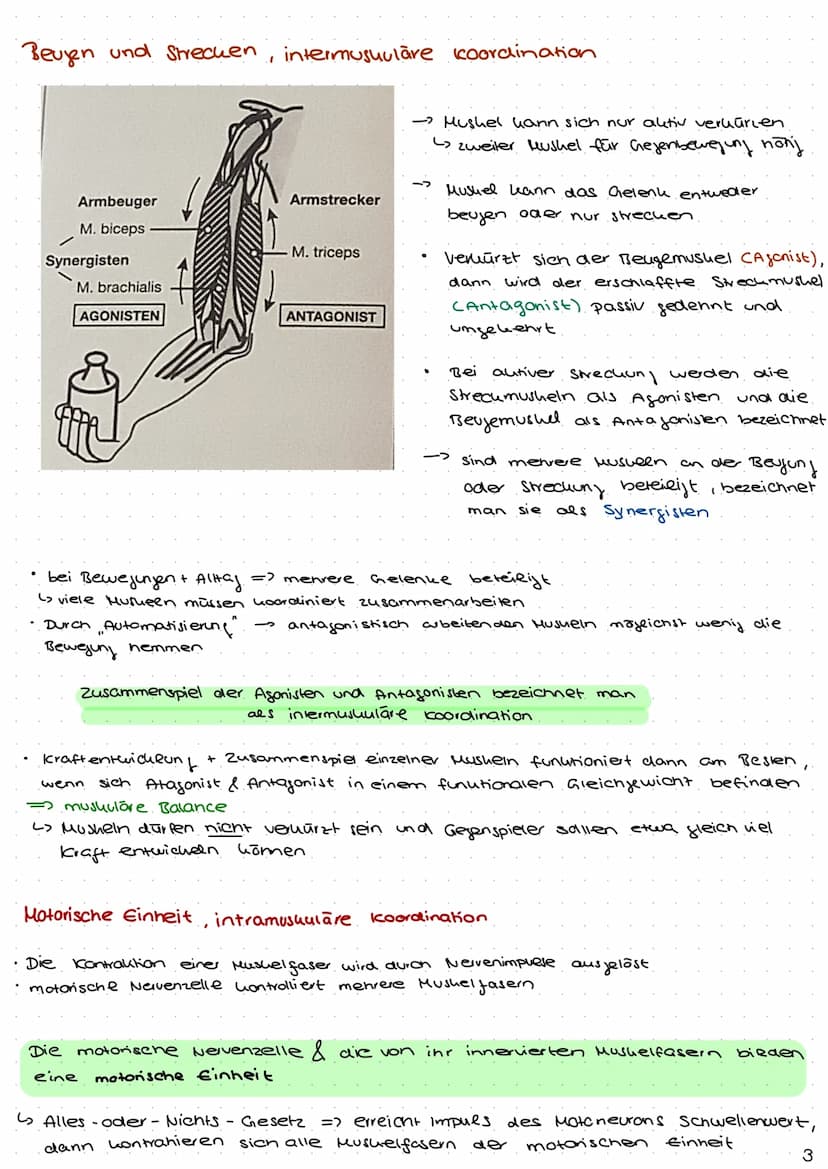 Beugen und Strecken, intermuskuläre Koordination
Armbeuger
M. biceps
Synergisten
M. brachialis
AGONISTEN
Armstrecker
M. triceps
ANTAGONIST
→ Muskel kann sich nur aktiv verkürzen
↳ zweiter Muskel für Gegenbewegung nötig
→ Muskel kann das Gelenk entweder
beugen oder nur strecken
• Verkürzt sich der Beugemuskel (Agonist),
dann wird der erschlaffte Streckmuskel
(Antagonist) passiv gedehnt und
umgekehrt
• Bei aktiver Streckung werden die
Streckmuskeln als Agonisten und die
Beugemuskel als Antagonisten bezeichnet
→ sind mehrere Muskeln an der Beugung
oder Streckung beteiligt, bezeichnet
man sie als Synergisten
• bei Bewegungen + Alltag => mehrere Gelenke beteiligt
↳ viele Muskeln müssen koordiniert zusammenarbeiten
• Durch „Automatisierung" → antagonistisch arbeitenden Muskeln möglichst wenig die
Bewegung hemmen
Zusammenspiel der Agonisten und Antagonisten bezeichnet man
als intermuskuläre Koordination
• Kraftentwicklung + Zusammenspiel einzelner Muskeln funktioniert dann am Besten,
wenn sich Atagonist & Antagonist in einem funktionalen Gleichgewicht befinden
=> muskuläre Balance
↳ Muskeln dürfen nicht verkürzt sein und Gegenspieler sollten etwa gleich viel
Kraft entwickeln können
Motorische Einheit, intramuskuläre Koordination
• Die Kontraktion einer Muskelfaser wird durch Nervenimpulse ausgelöst
• motorische Nervenzelle kontrolliert mehrere Muskelfasern
Die motorische Nervenzelle & die von ihr innervierten Muskelfasern bieden
eine motorische Einheit
↳ Alles-oder-Nichts-Gesetz => erreicht Impuls des Motoneurons Schwellenwert,
dann kontrahieren sich alle Muskelfasern der motorischen Einheit
3